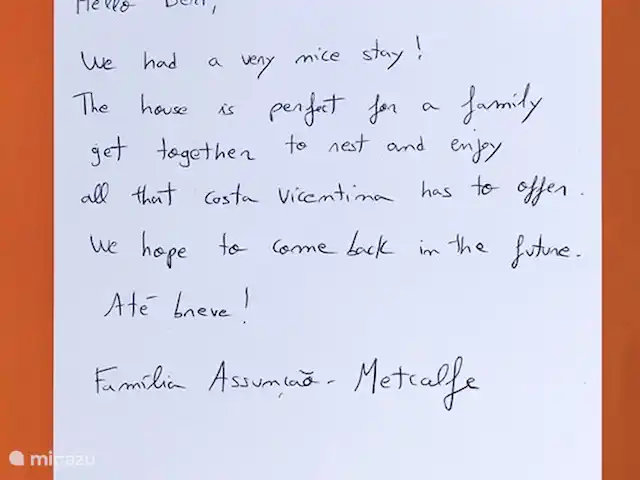 Hello
We had a very nice stay!
The house is perfect for a family
get together to rest and enjoy
all that Costa Vicentina has to offer.
We hope to come back in the future.
Até breve!
Família Assunção - Metcalfe
micazu